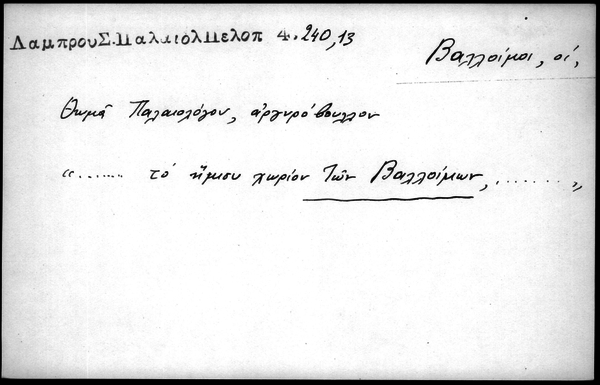 ΛαμπρουΣ.ΠαλαιολΠελοπ 4.240,13
Βαλλοίμοι, οἱ,
Θωμᾶ Παλαιολόγου, ἀργυρόβουλλον
«....... τὸ ἥμισυ χωρίον τῶν Βαλλοίμων, ........»